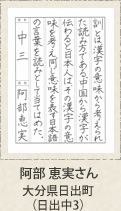 訓とは漢字の意味から考えられ
た読み方である。中国から漢字が
伝わると日本人はその漢字の意
味を考え、同じ意味を表す日本語
の言葉を読みとして当てはめた。
中三 阿部恵実
阿部 恵実さん
大分県日出町
(日出中3)